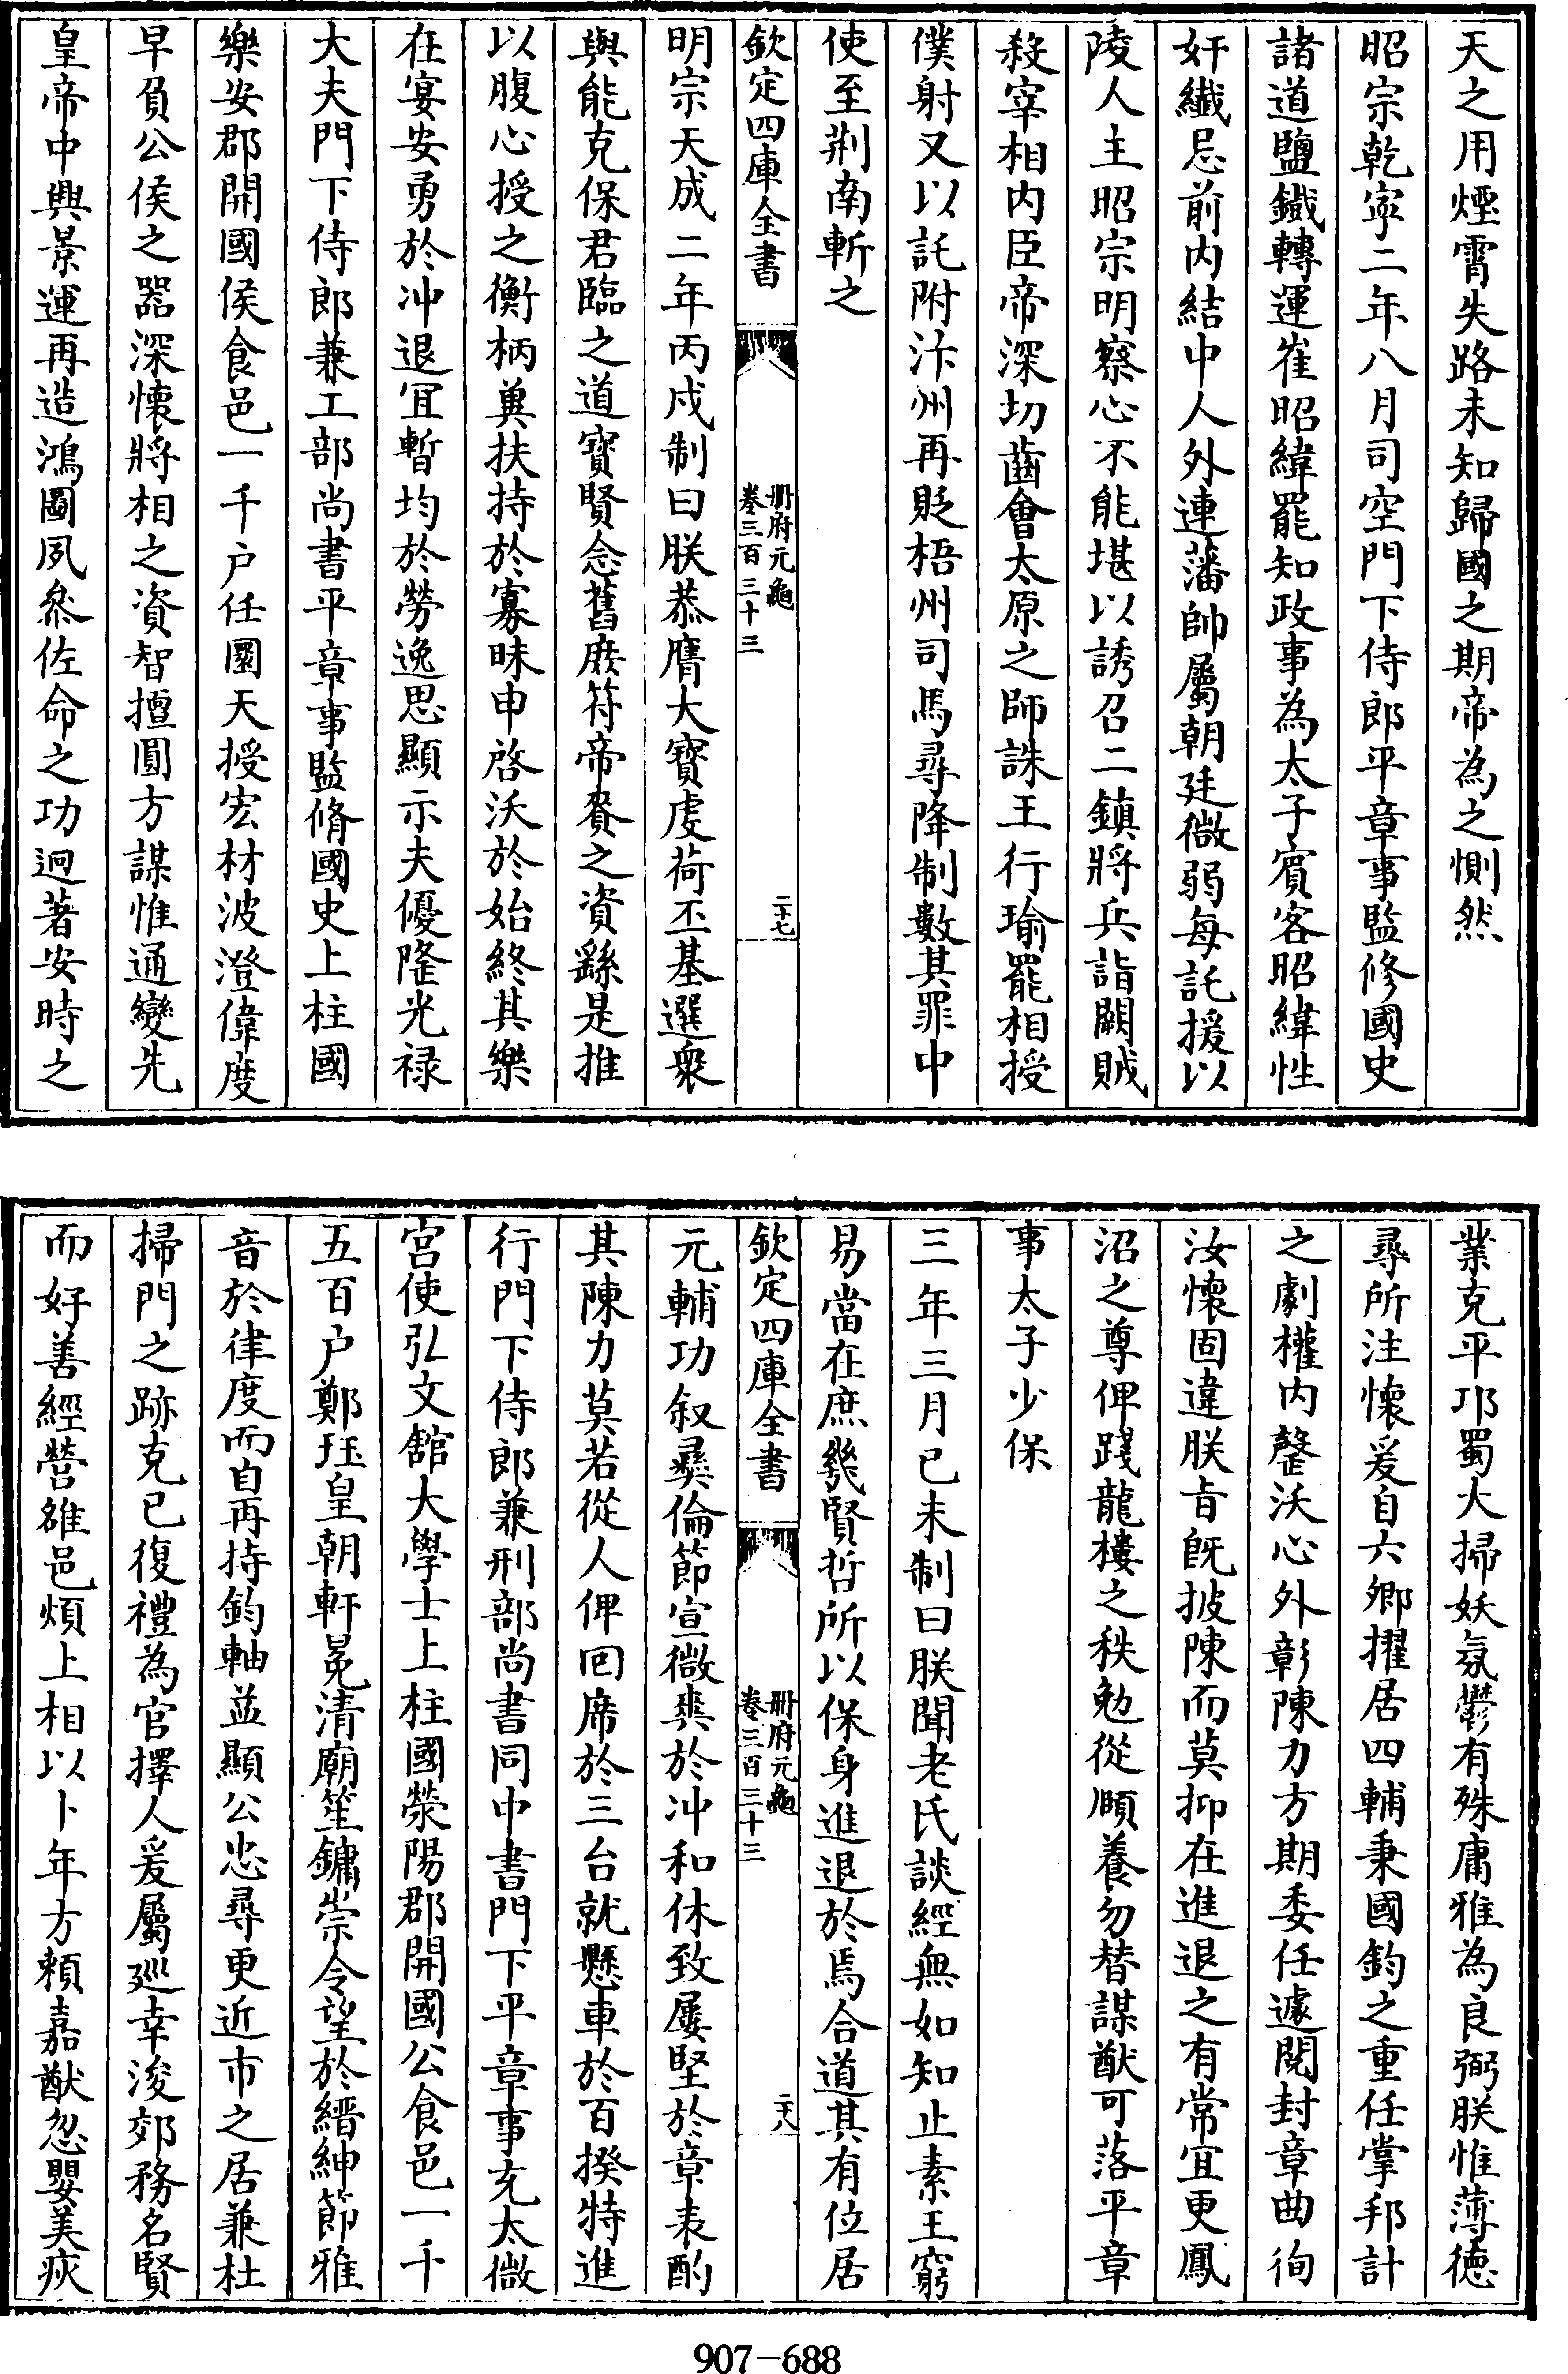 天之用煙霄失路未知歸國之期帝為之惻然
昭宗乾寧二年八月司空門下侍郎平章事監修國史
諸道鹽鐵轉運崔昭緯罷知政事為太子賓客昭緯性
奸纎忌前内結中人外連藩帥屬朝廷微弱每託援以
陵人主昭宗明察心不能堪以誘召二鎮將兵詣闕賊
殺宰相内臣帝深切齒會太原之師誅王行瑜罷相授
僕射又以託附汴州再貶梧州司馬尋降制數其罪中
使至荆南斬之
欽定四庫全書
冊府元龜
卷三百三十三
二十七
明宗天成二年丙戌制曰朕恭膺大寳虔荷丕基選衆
與能克保君臨之道寳賢念舊庶符帝賚之資繇是推
以腹心授之衡柄冀扶持於寡昧申啓沃於始終其樂
在宴安勇於冲退宜暫均於勞逸思顯示夫優隆光禄
大夫門下侍郎兼工部尚書平章事監脩國史上柱國
樂安郡開國侯食邑一千户任圜天授宏材波澄偉度
早負公侯之器深懷將相之資智擅圓方謀惟通變先
皇帝中興景運再造鴻圖夙叅佐命之功迥著安時之
業克平邛蜀大掃妖氛鬱有殊庸雅為良弼朕惟薄徳
尋所注懷爰自六卿擢居四輔秉國鈞之重任掌邦計
之劇權内罄沃心外彰陳力方期委任遽閲封章曲徇
汝懷固違朕㫖既披陳而莫抑在進退之有常宜更鳳
沼之尊俾踐龍樓之秩勉從頤養勿替謀猷可落平章
事太子少保
三年三月己未制曰朕聞老氏談經無如知止素王窮
易當在庶幾賢哲所以保身進退於焉合道其有位居
欽定四庫全書
冊府元龜
卷三百三十三
二十八
元輔功叙彞倫節宣微爽於冲和休致屢堅於章表酌
其陳力莫若從人俾囘席於三台就懸車於百揆特進
行門下侍郎兼刑部尚書同中書門下平章事充太微
宫使弘文舘大學士上柱國滎陽郡開國公食邑一千
五百户鄭珏皇朝軒冕清廟笙鏞崇令望於縉紳節雅
音於律度而自再持鈞軸並顯公忠尋更近市之居兼杜
掃門之跡克已復禮為官擇人爰屬廵幸浚郊務名賢
而好善經營雒邑煩上相以卜年方頼嘉猷忽嬰美疢
907-688